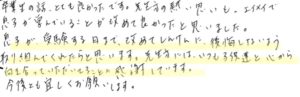 卒業生の話、とても良かったです。先生方の熱い思いも。エイメイで
息子が学んでいることが改めて良かったと思いました。
息子が受験する日まで、改めてしんけんに、後悔しないよう
取り組んでくれたらと思います。先生方には、いつも子供達と心から
向き合っていただいていることに感謝しています。
今後とも宜しくお願いします。